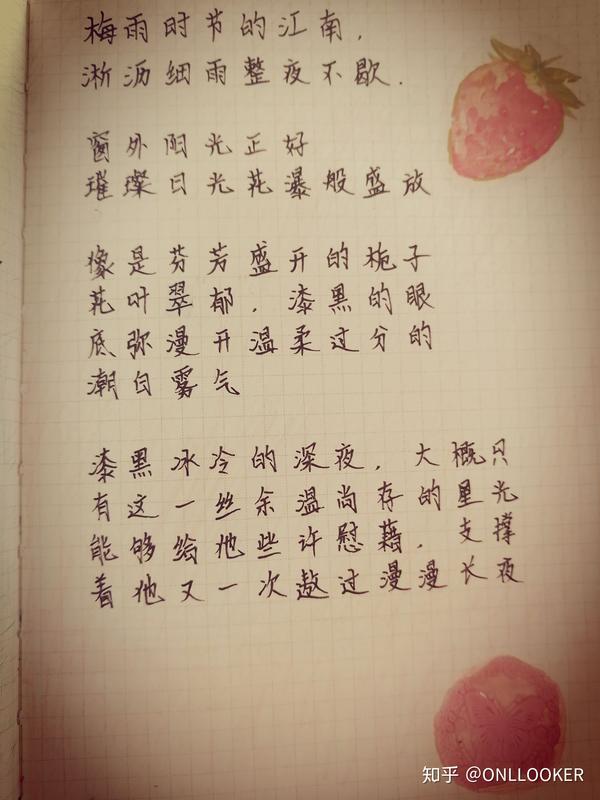 梅雨时节的江南，
淅沥细雨整夜不歇．
窗外阳光正好
璀璨日光花瀑般盛放
像是芬芳盛开的栀子
花叶翠郁．漆黑的眼
底弥漫开温柔过分的
潮白雾气
漆黑冰冷的深夜．大概只
有这一丝余温尚存的星光
能够给他些许慰藉．支撑
着他又一次敖过漫漫长夜
知乎 @ONLLOOKER